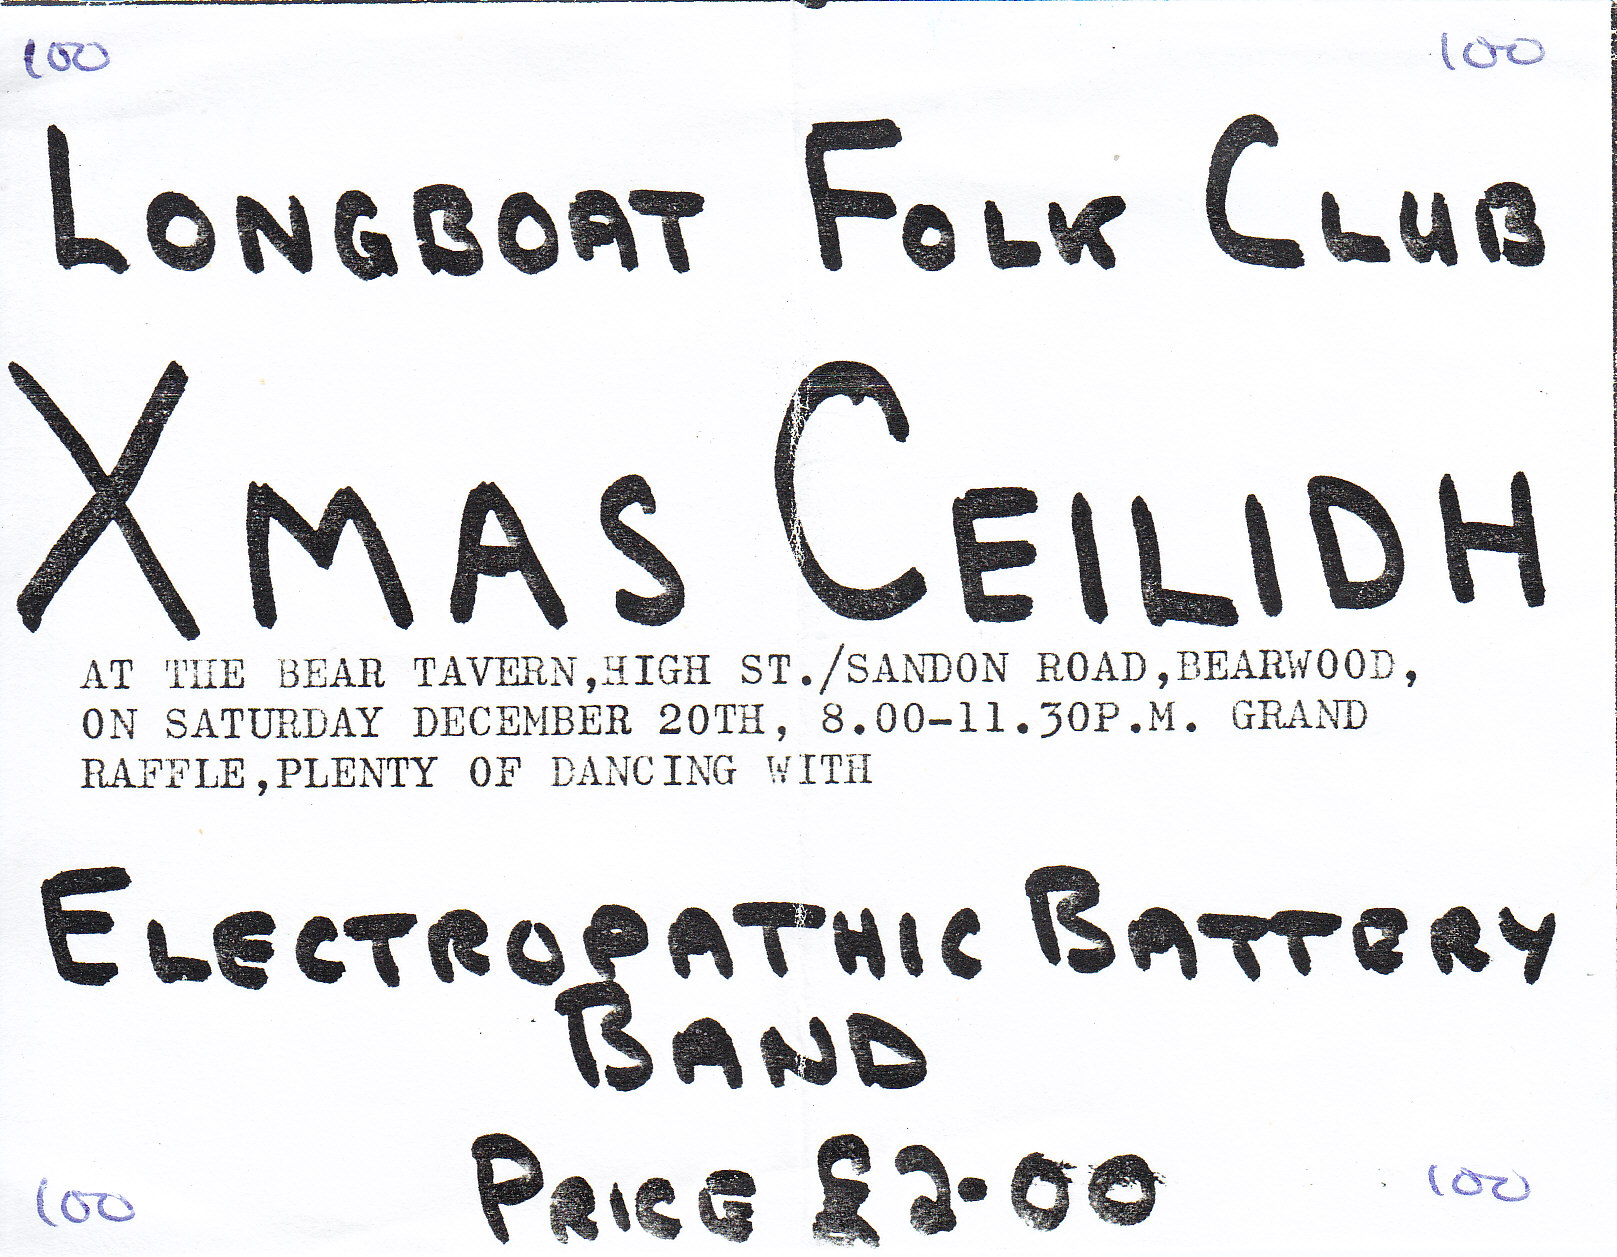 100 100
LONGBOAT FOLK CLUB
XMAS CEILIDH
AT THE BEAR TAVERN,HIGH ST./SANDON ROAD,BEARWOOD,
ON SATURDAY DECEMBER 20TH, 8.00-11.30P.M. GRAND
RAFFLE,PLENTY OF DANCING WITH
ELECTROPATHIC BATTERY
BAND
PRICE £2.00
100 100